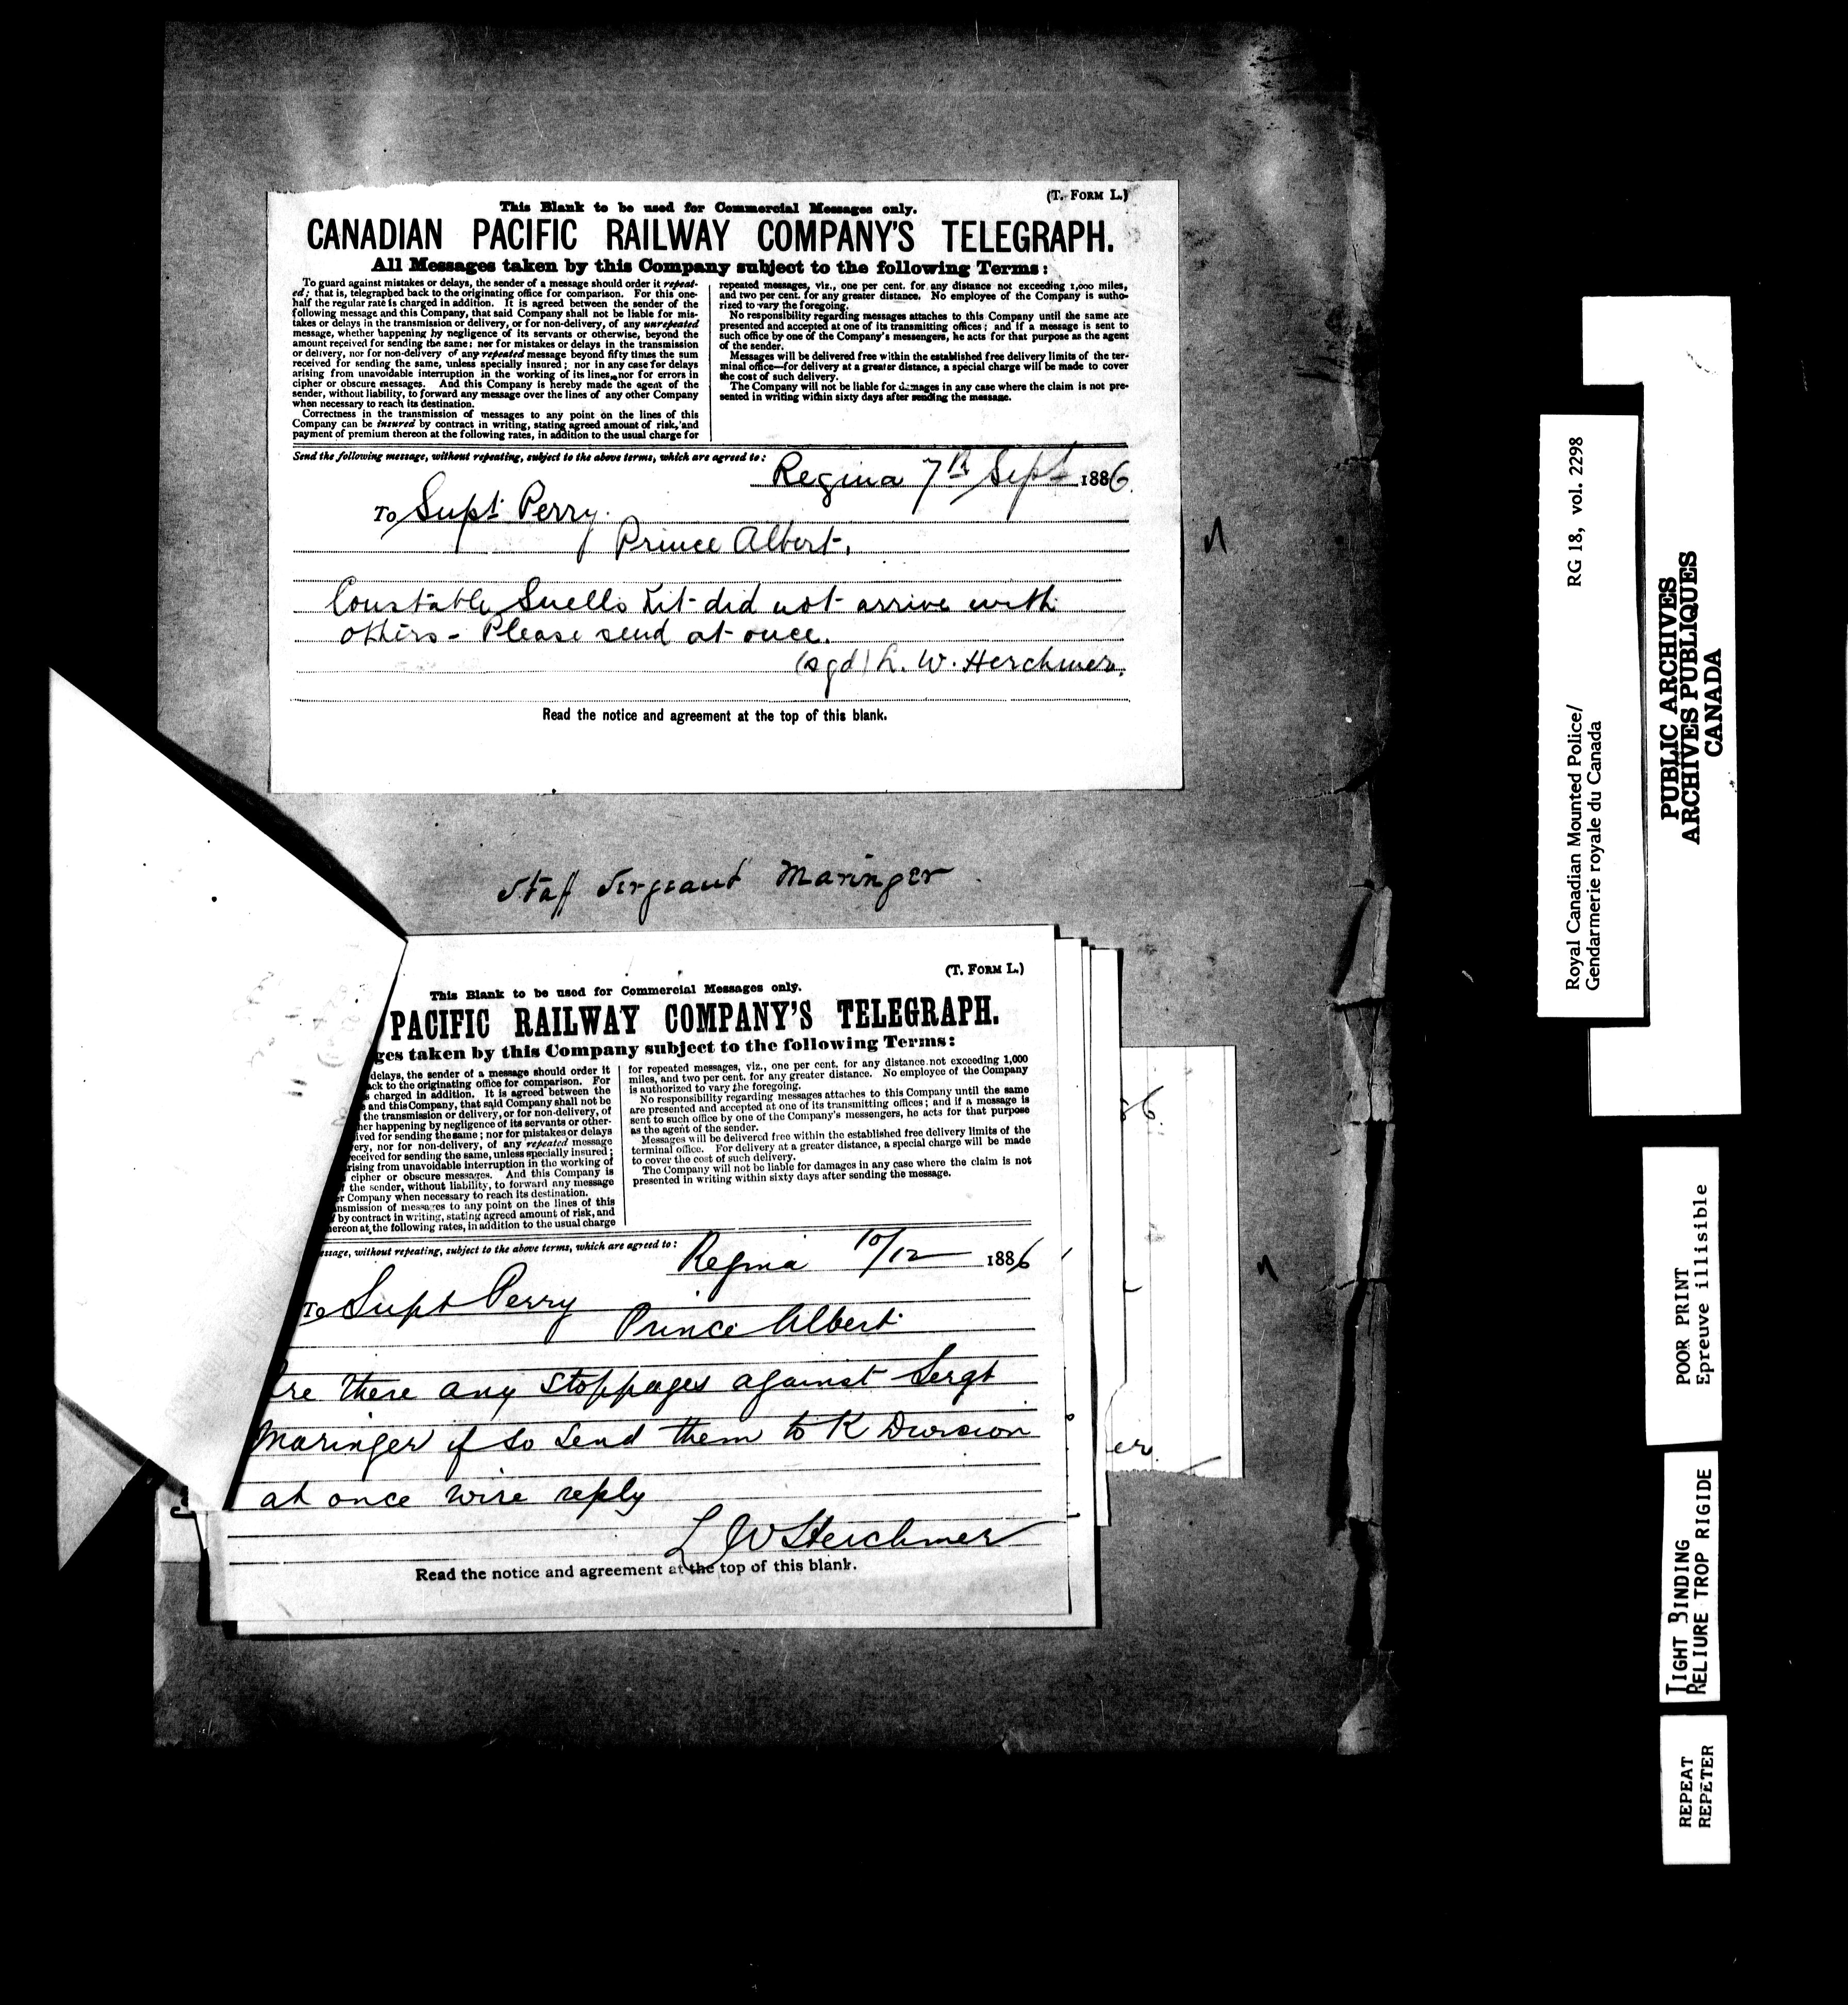 (T. FORM L.)
This Blank to be used for Commercial Messages only.
CANADIAN PACIFIC RAILWAY COMPANY'S TELEGRAPH.
All Messages taken by this Company subject to the following Terms:
To guard against mistakes or delays, the sender of a message should order it repeat-
ed; that is, telegraphed back to the originating office for comparison. For this one-
half the regular rate is charged in addition. It is agreed between the sender of the
following message and this Company, that said Company shall not be liable for mis-
takes or delays in the transmission or delivery, or for non-delivery, of any unrepeated
message, whether happening by negligence of its servants or otherwise, beyond the
amount received for sending the same; nor for mistakes or delays in the transmission
or delivery, nor for non-delivery of any repeated message beyond fifty times the sum
received for sending the same, unless specially insured; nor in any case for delays
arising from unavoidable interruption in the working of its lines, nor for errors in
cipher or obscure messages. And this Company is hereby made the agent of the
sender, without liability, to forward any message over the lines of any other Company
when necessary to reach its destination.
Correctness in the transmission of messages to any point on the lines of this
Company can be insured by contract in writing, stating agreed amount of risk, and
payment of premium thereon at the following rates, in addition to the usual charge for
repeated messages, viz., one per cent. for any distance not exceeding 1,000 miles,
and two per cent. for any greater distance. No employee of the Company is autho-
rized to vary the foregoing.
No responsibility regarding messages attaches to this Company until the same are
presented and accepted at one of its transmitting offices; and if a message is sent to
such office by one of the Company's messengers, he acts for that purpose as the agent
of the sender.
Messages will be delivered free within the established free delivery limits of the ter-
minal office—for delivery at a greater distance, a special charge will be made to cover
the cost of such delivery.
The Company will not be liable for damages in any case where the claim is not pre-
sented in writing within sixty days after sending the message.
Send the following message, without repeating, subject to the above terms, which are agreed to:
Regina 7th Sept 1886.
To Supt Perry.
Prince Albert.
Constable Snells Kit did not arrive with
others - Please send at once.
(sgd) L. W. Herchmer.
Read the notice and agreement at the top of this blank.
Staff Sergeant Maringer
(T. FORM L.)
This Blank to be used for Commercial Messages only.
PACIFIC RAILWAY COMPANY'S TELEGRAPH.
ges taken by this Company subject to the following Terms:
delays, the sender of a message should order it
ck to the originating office for comparison. For
s charged in addition. It is agreed between the
and this Company, that said Company shall not be
the transmission or delivery, or for non-delivery, of
her happening by negligence of its servants or other-
ived for sending the same; nor for mistakes or delays
ery, nor for non-delivery, of any repeated message
eceived for sending the same, unless specially insured;
rising from unavoidable interruption in the working of
cipher or obscure messages. And this Company is
the sender, without liability, to forward any message
er Company when necessary to reach its destination.
ansmission of messages to any point on the lines of this
by contract in writing, stating agreed amount of risk, and
hereon at the following rates, in addition to the usual charge
for repeated messages, viz., one per cent. for any distance not exceeding 1,000
miles, and two per cent. for any greater distance. No employee of the Company
is authorized to vary the foregoing.
No responsibility regarding messages attaches to this Company until the same
are presented and accepted at one of its transmitting offices; and if a message is
sent to such office by one of the Company's messengers, he acts for that purpose
as the agent of the sender.
Messages will be delivered free within the established free delivery limits of the
terminal office. For delivery at a greater distance, a special charge will be made
to cover the cost of such delivery.
The Company will not be liable for damages in any case where the claim is not
presented in writing within sixty days after sending the message.
ssage, without repeating, subject to the above terms, which are agreed to:
Regina 10/12 1886
To Supt Perry
Prince Albert
are there any stoppages against Sergt
Maringer if so send them to K Division
at once wire reply
L W Herchmer
Read the notice and agreement at the top of this blank.
86.
er.
Royal Canadian Mounted Police/
Gendarmerie royale du Canada
RG 18, vol. 2298
PUBLIC ARCHIVES
ARCHIVES PUBLIQUES
CANADA
POOR PRINT
Epreuve illisible
TIGHT BINDING
RELIURE TROP RIGIDE
REPEAT
REPETER